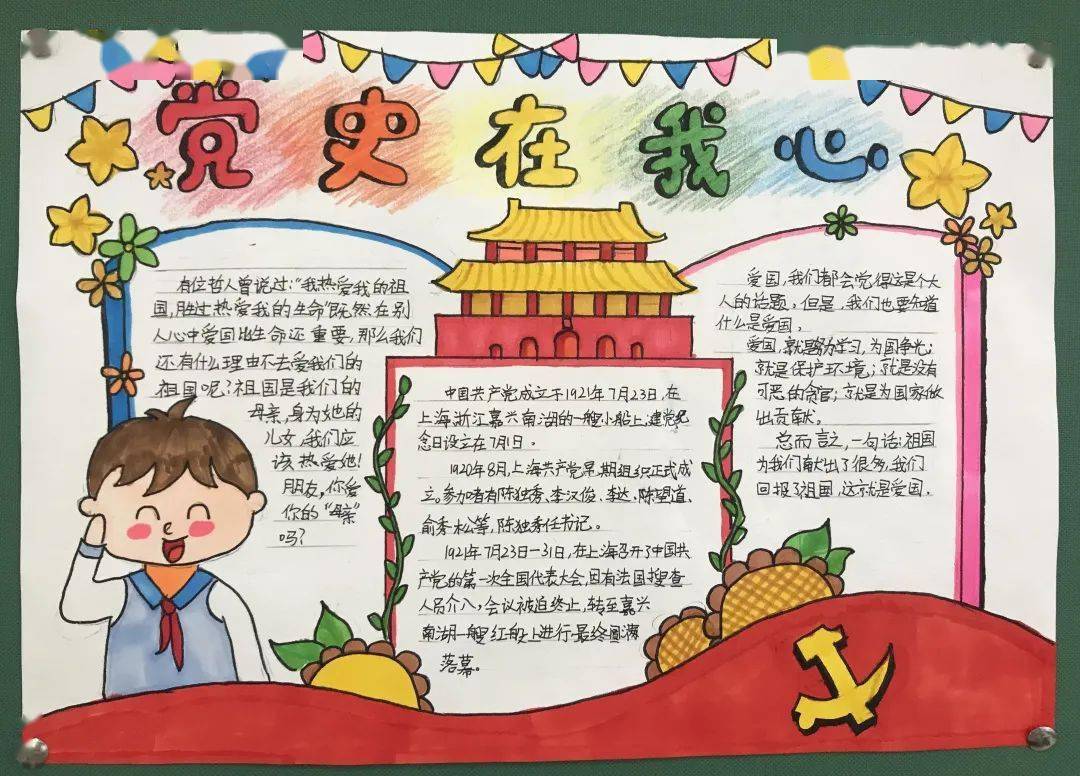 党史在我心
有位哲人曾说过:“我热爱我的祖
国,胜过热爱我的生命”既然在别
人心中爱国比生命还重要,那么我们
还有什么理由不去爱我们的
祖国呢?祖国是我们的
母亲,身为她的
儿女,我们应
该热爱她!
朋友,你爱
你的“母亲”
吗?
中国共产党成立于1921年7月23日,在
上海浙江嘉兴南湖的一艘小船上,建党纪
念日设立在7月1日。
1920年8月,上海共产党早期组织正式成
立。参加者有陈独秀、李汉俊、李达、陈望道、
俞秀松等,陈独秀任书记。
1921年7月23日-31日,在上海召开了中国共
产党的第一次全国代表大会,因有法国搜查
人员介入,会议被迫终止,转至嘉兴
南湖一艘红船上进行最终圆满
落幕。
爱国,我们都会觉得这是个大
人的话题,但是,我们也要知道
什么是爱国。
爱国,就是努力学习,为国争光;
就是保护环境;就是没有
可恶的贪官;就是为国家做
出贡献。
总而言之,一句话:祖国
为我们献出了很多,我们
回报了祖国,这就是爱国。